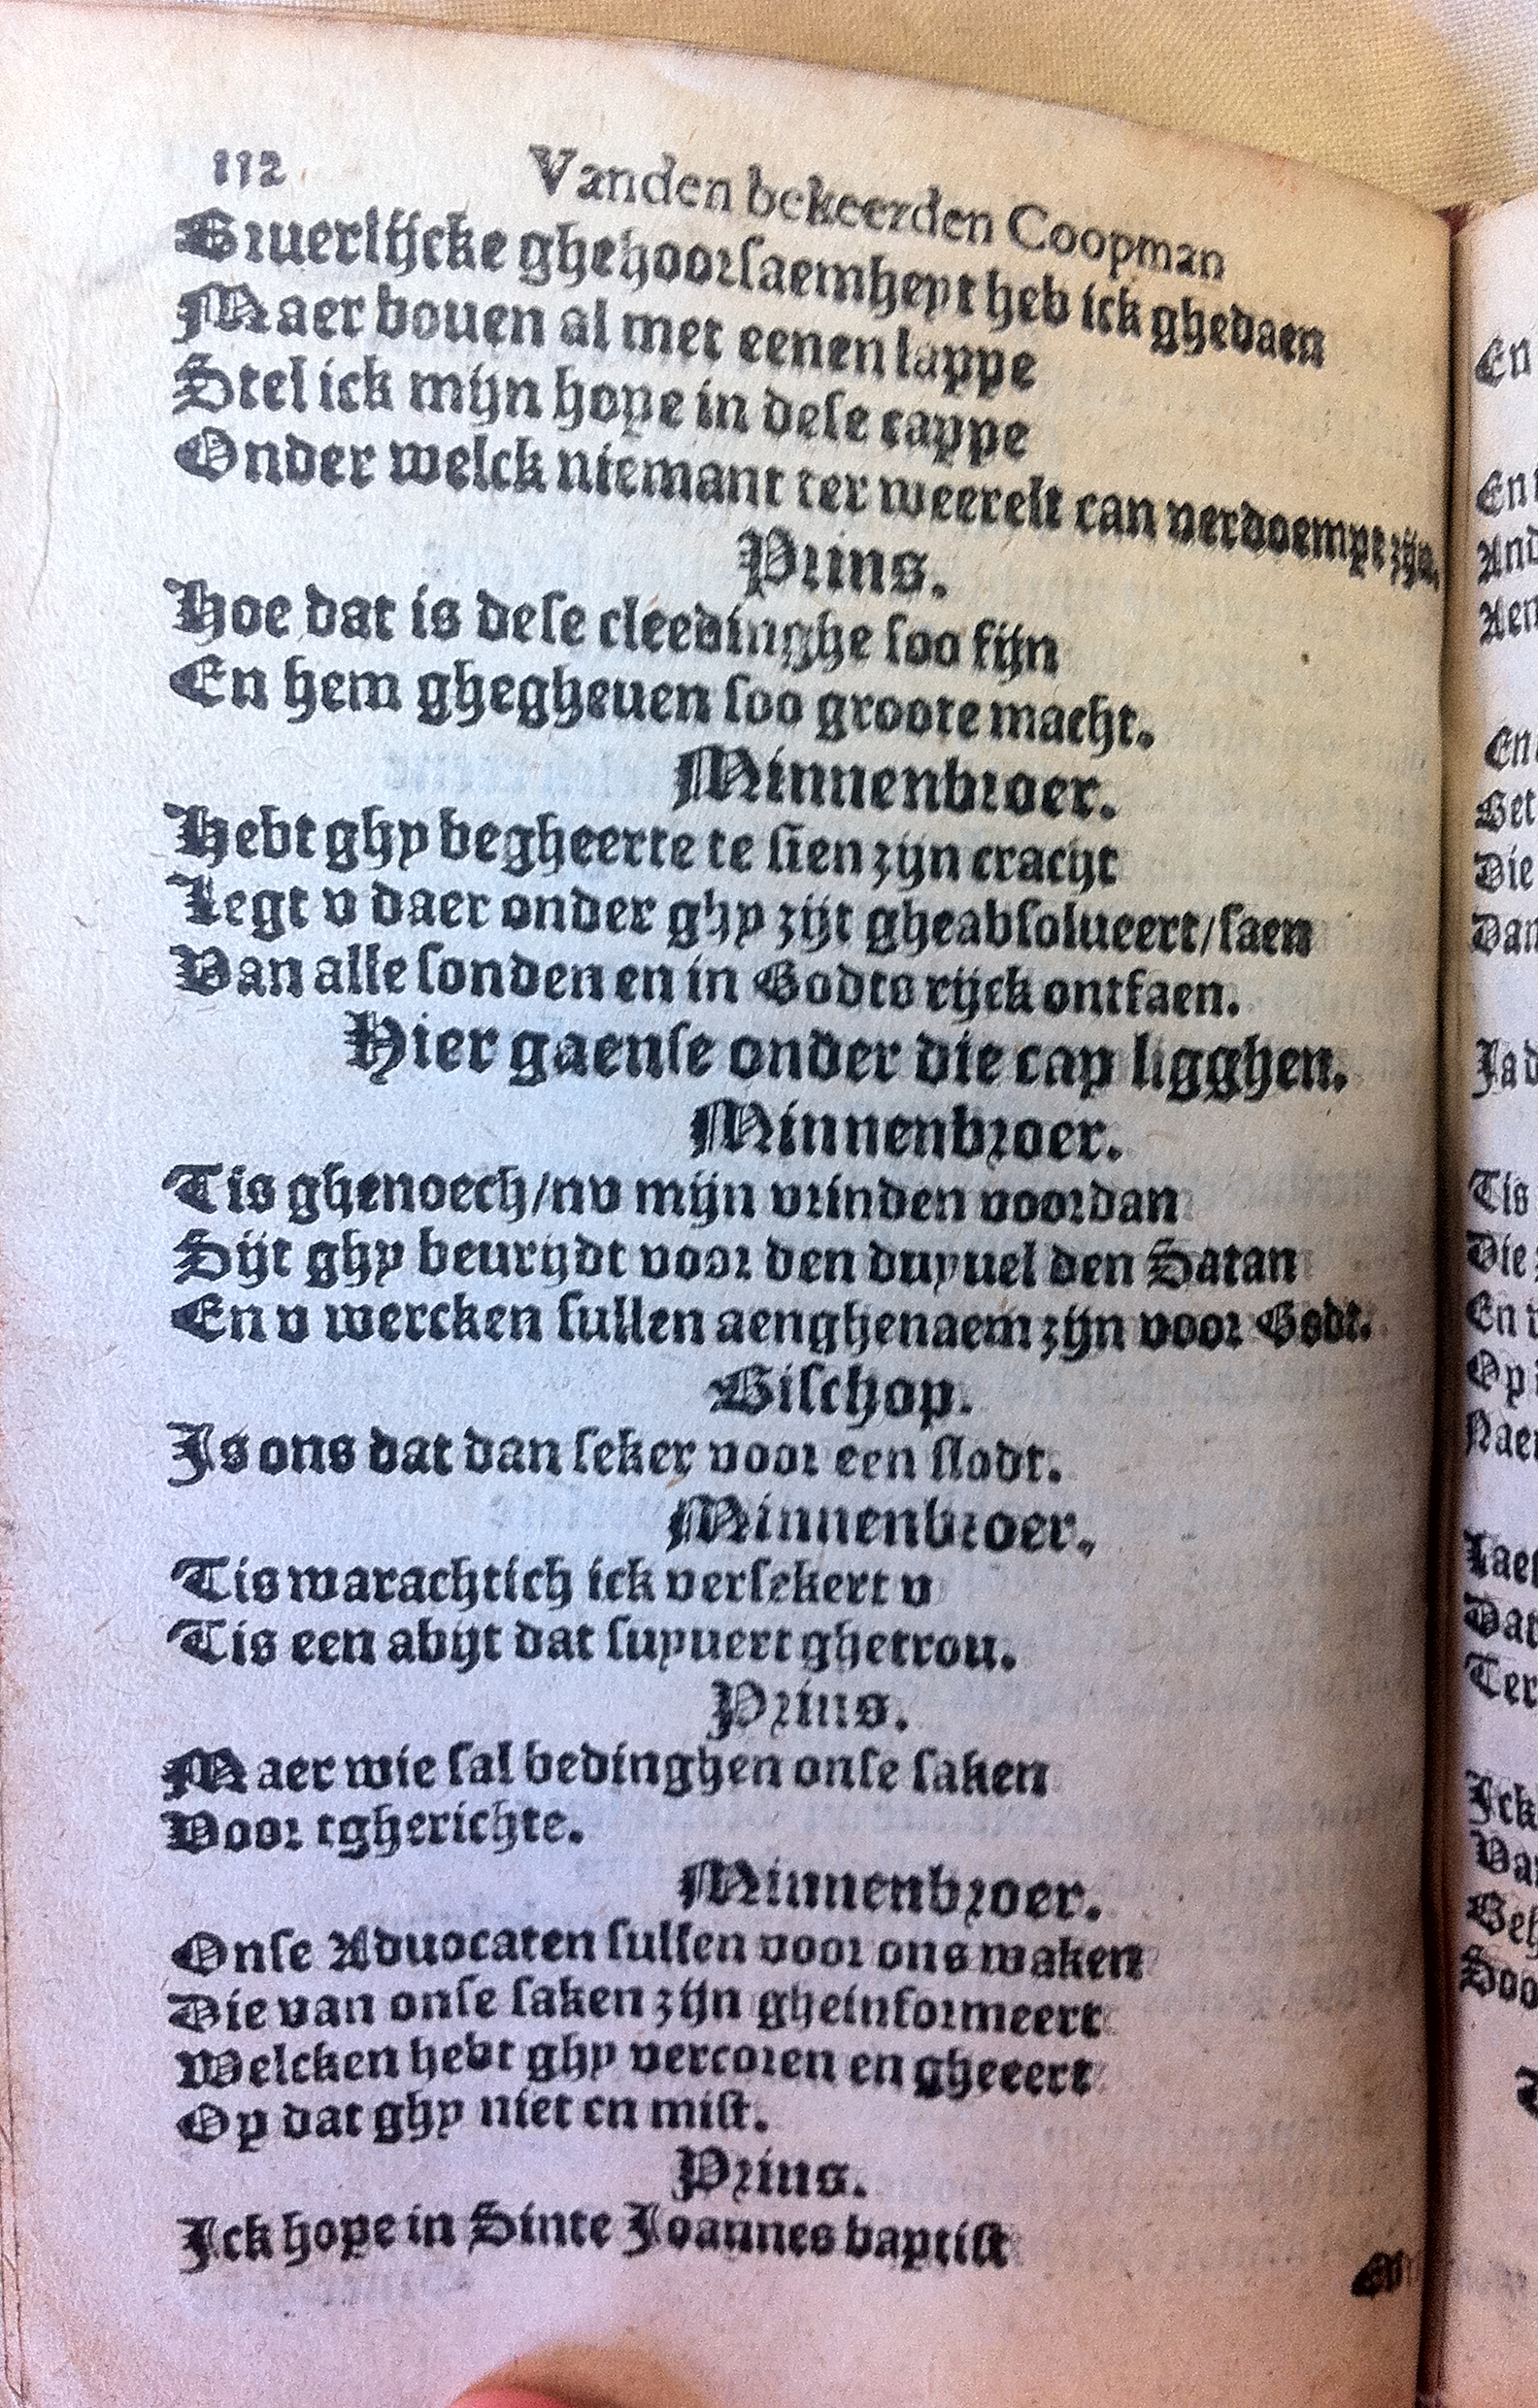 112 Vanden bekeerden Coopman
Siuerlijcke ghehoorsaemheyt heb ick ghedaen
Maer bouen al met eenen lappe
Stel ick mijn hope in dese cappe
Onder welck niemant ter weerelt can verdoempt zijn.
Prins.
Hoe dat is dese cleedinghe soo fijn
En hem ghegheuen soo groote macht.
Minnenbroer.
Hebt ghy begheerte te sien zijn cracht
Legt v daer onder ghy zijt gheabsolueert/saen
Van alle sonden en in Godts rijck ontfaen.
Hier gaense onder die cap ligghen.
Minnenbroer.
Tis ghenoech/nv mijn vrinden voordan
Sijt ghy beurijdt voor den duyuel den Satan
En v wercken sullen aenghenaem zijn voor Godt.
Bisschop.
Is ons dat dan seker voor een slodt.
Minnenbroer.
Tis warachtich ick versekert v
Tis een abijt dat suyuert ghetrou.
Prins.
Maer wie sal bedinghen onse saken
Voor tgherichte.
Minnenbroer.
Onse Aduocaten sullen voor ons waken
Die van onse saken zijn gheinformeert
Welcken hebt ghy vercoren en gheeert
Op dat ghy niet en mist.
Prins.
Ick hope in Sinte Joannes baptist
En
En
And
Aen
En
Get
Die
Dan
Ja d
Tis
Die
En v
Op
Naer
Laet
Dat
Ter
Ick
Van
Geh
Doo